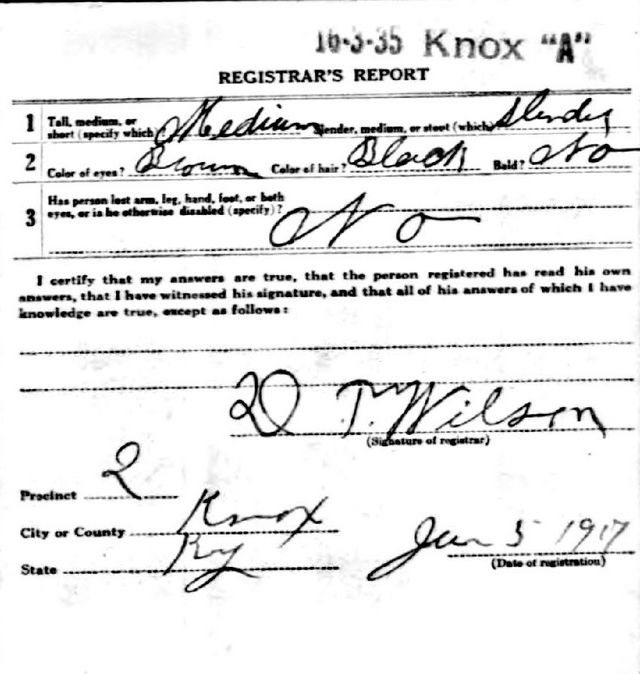 16-3-35 Knox "A"
REGISTRAR'S REPORT
1 Tall, medium, or short (specify which)? Medium Slender, medium, or stout (which)? Slender
2 Color of eyes? Brown Color of hair? Black Bald? No
3 Has person lost arm, leg, hand, foot, or both eyes, or is he otherwise disabled (specify)? No
I certify that my answers are true, that the person registered has read his own
answers, that I have witnessed his signature, and that all of his answers of which I have
knowledge are true, except as follows:
D T. Wilson
(Signature of registrar)
Precinct 2
City or County Knox
State Ky
Jun 5 1917
(Date of registration)